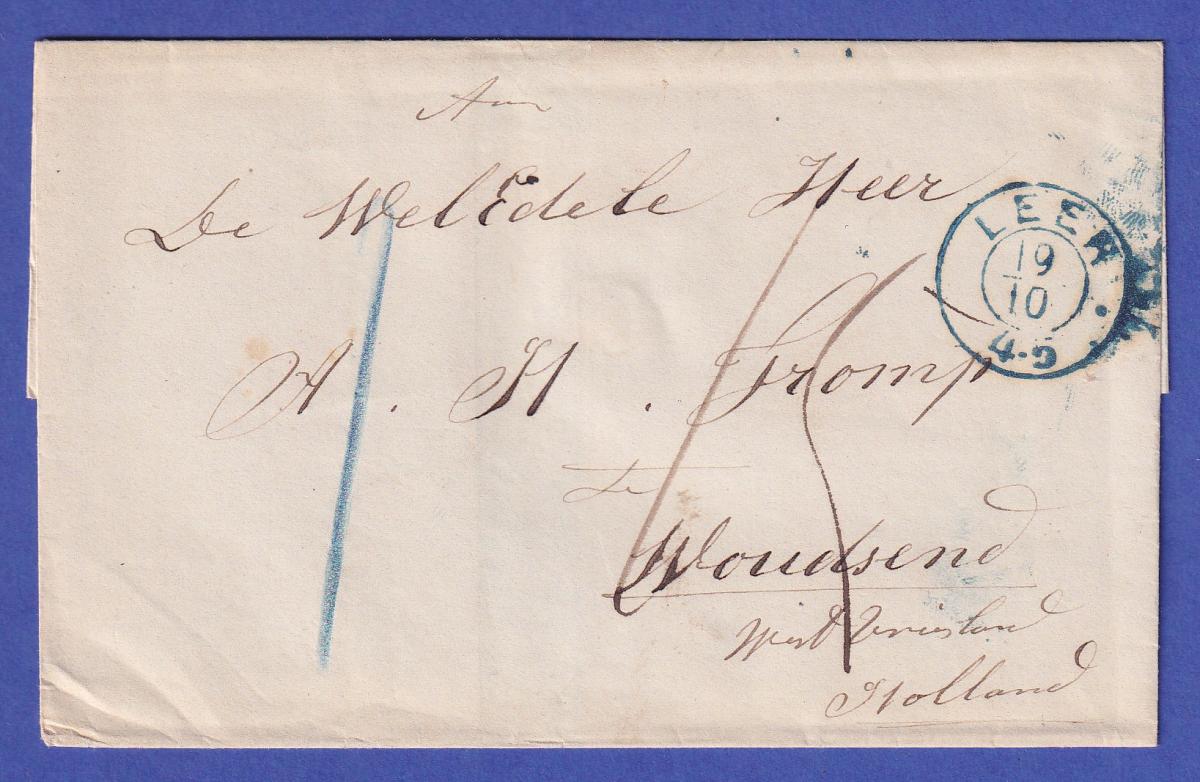 Aan
De WelEdele Heer
A. H. Tromp
te
Woudsend
West Vriesland
Holland
LEER
19
10
4-5
15